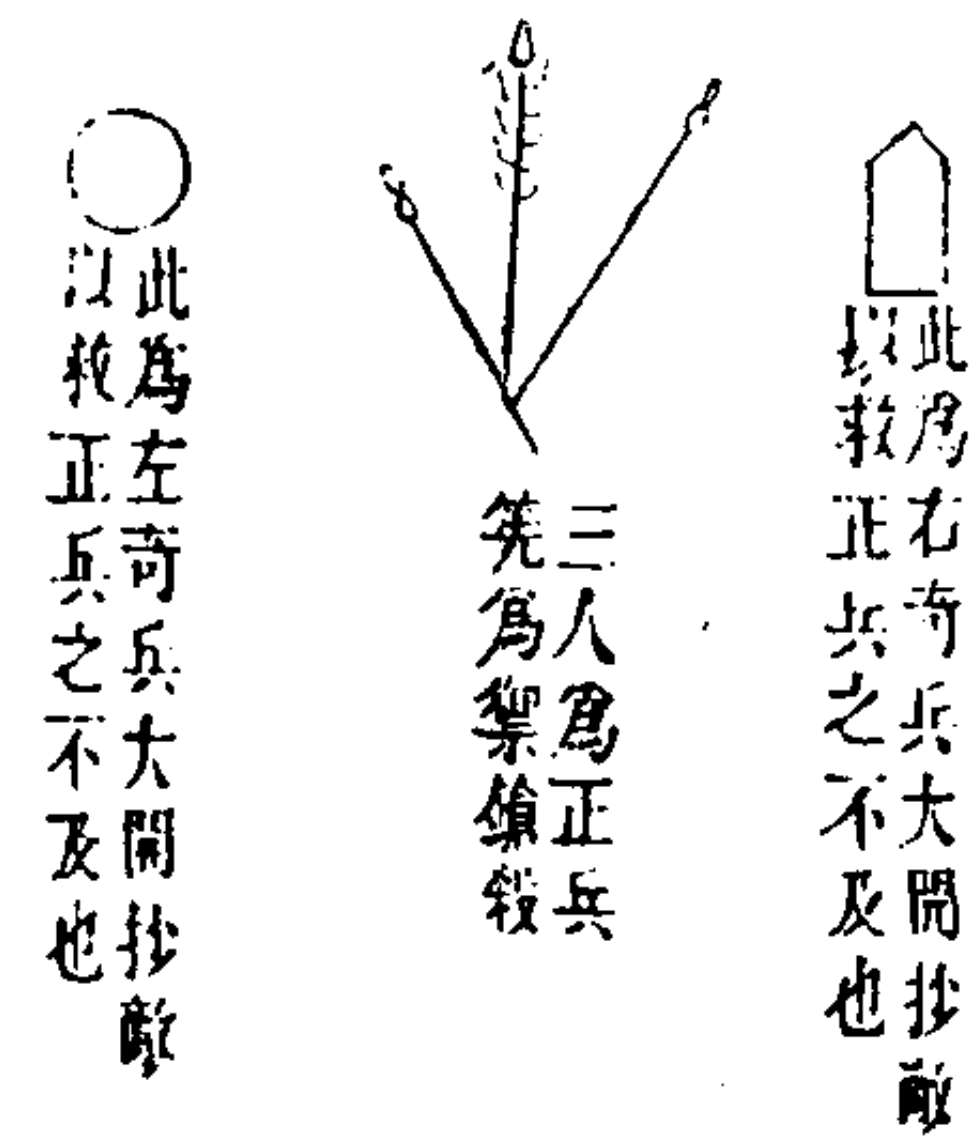 此為右奇兵大開抄敵
以救正兵之不及也
三人為正兵
筅為禦鎗殺
此為左奇兵大開抄敵
以救正兵之不及也